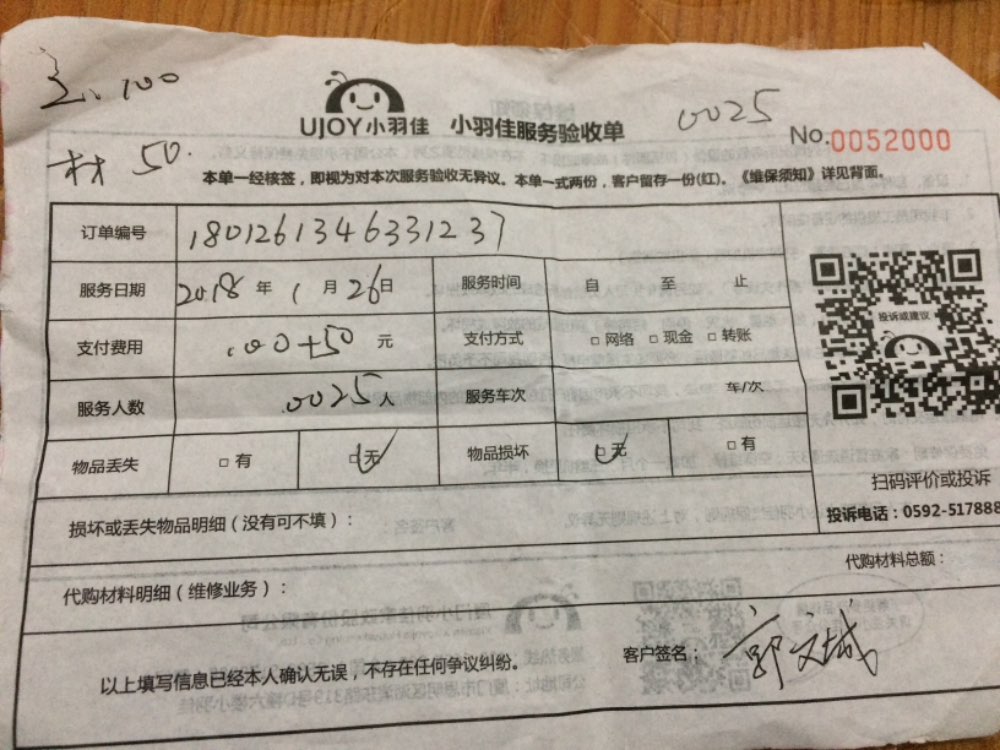 100
UJOY小羽佳 小羽佳服务验收单
0025
No.0052000
材 50.
本单一经核签，即视为对本次服务验收无异议。本单一式两份，客户留存一份(红)。《维保须知》详见背面。
订单编号 1801261346331237
服务日期 2018 年 1 月 26 日 服务时间 自 至 止
投诉或建议
支付费用 100+50 元 支付方式 □网络 □现金 □转账
服务人数 0025人 服务车次 车/次
物品丢失 □有 □无 物品损坏 □无 □有
扫码评价或投诉
损坏或丢失物品明细（没有可不填）：
投诉电话：0592-517888
代购材料明细（维修业务）： 代购材料总额：
以上填写信息已经本人确认无误，不存在任何争议纠纷。 客户签名：